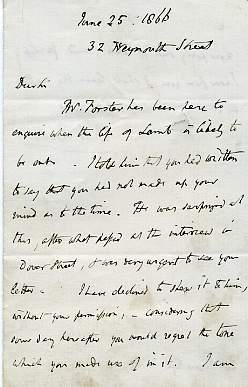 June 25 : 1866
32 Weymouth Street
Dear Sir
Mr. Forster has been here to
enquire when the life of Lamb is likely to
be out. I told him that you had written
to say that you had not made up your
mind as to the time. He was surprised at
this, after what passed at the interview in
Dover Street, & was very urgent to see your
letter - I have declined to shew it to him,
without your permission, - considering that
some day hereafter you would regret the tone
which you made use of in it. I am